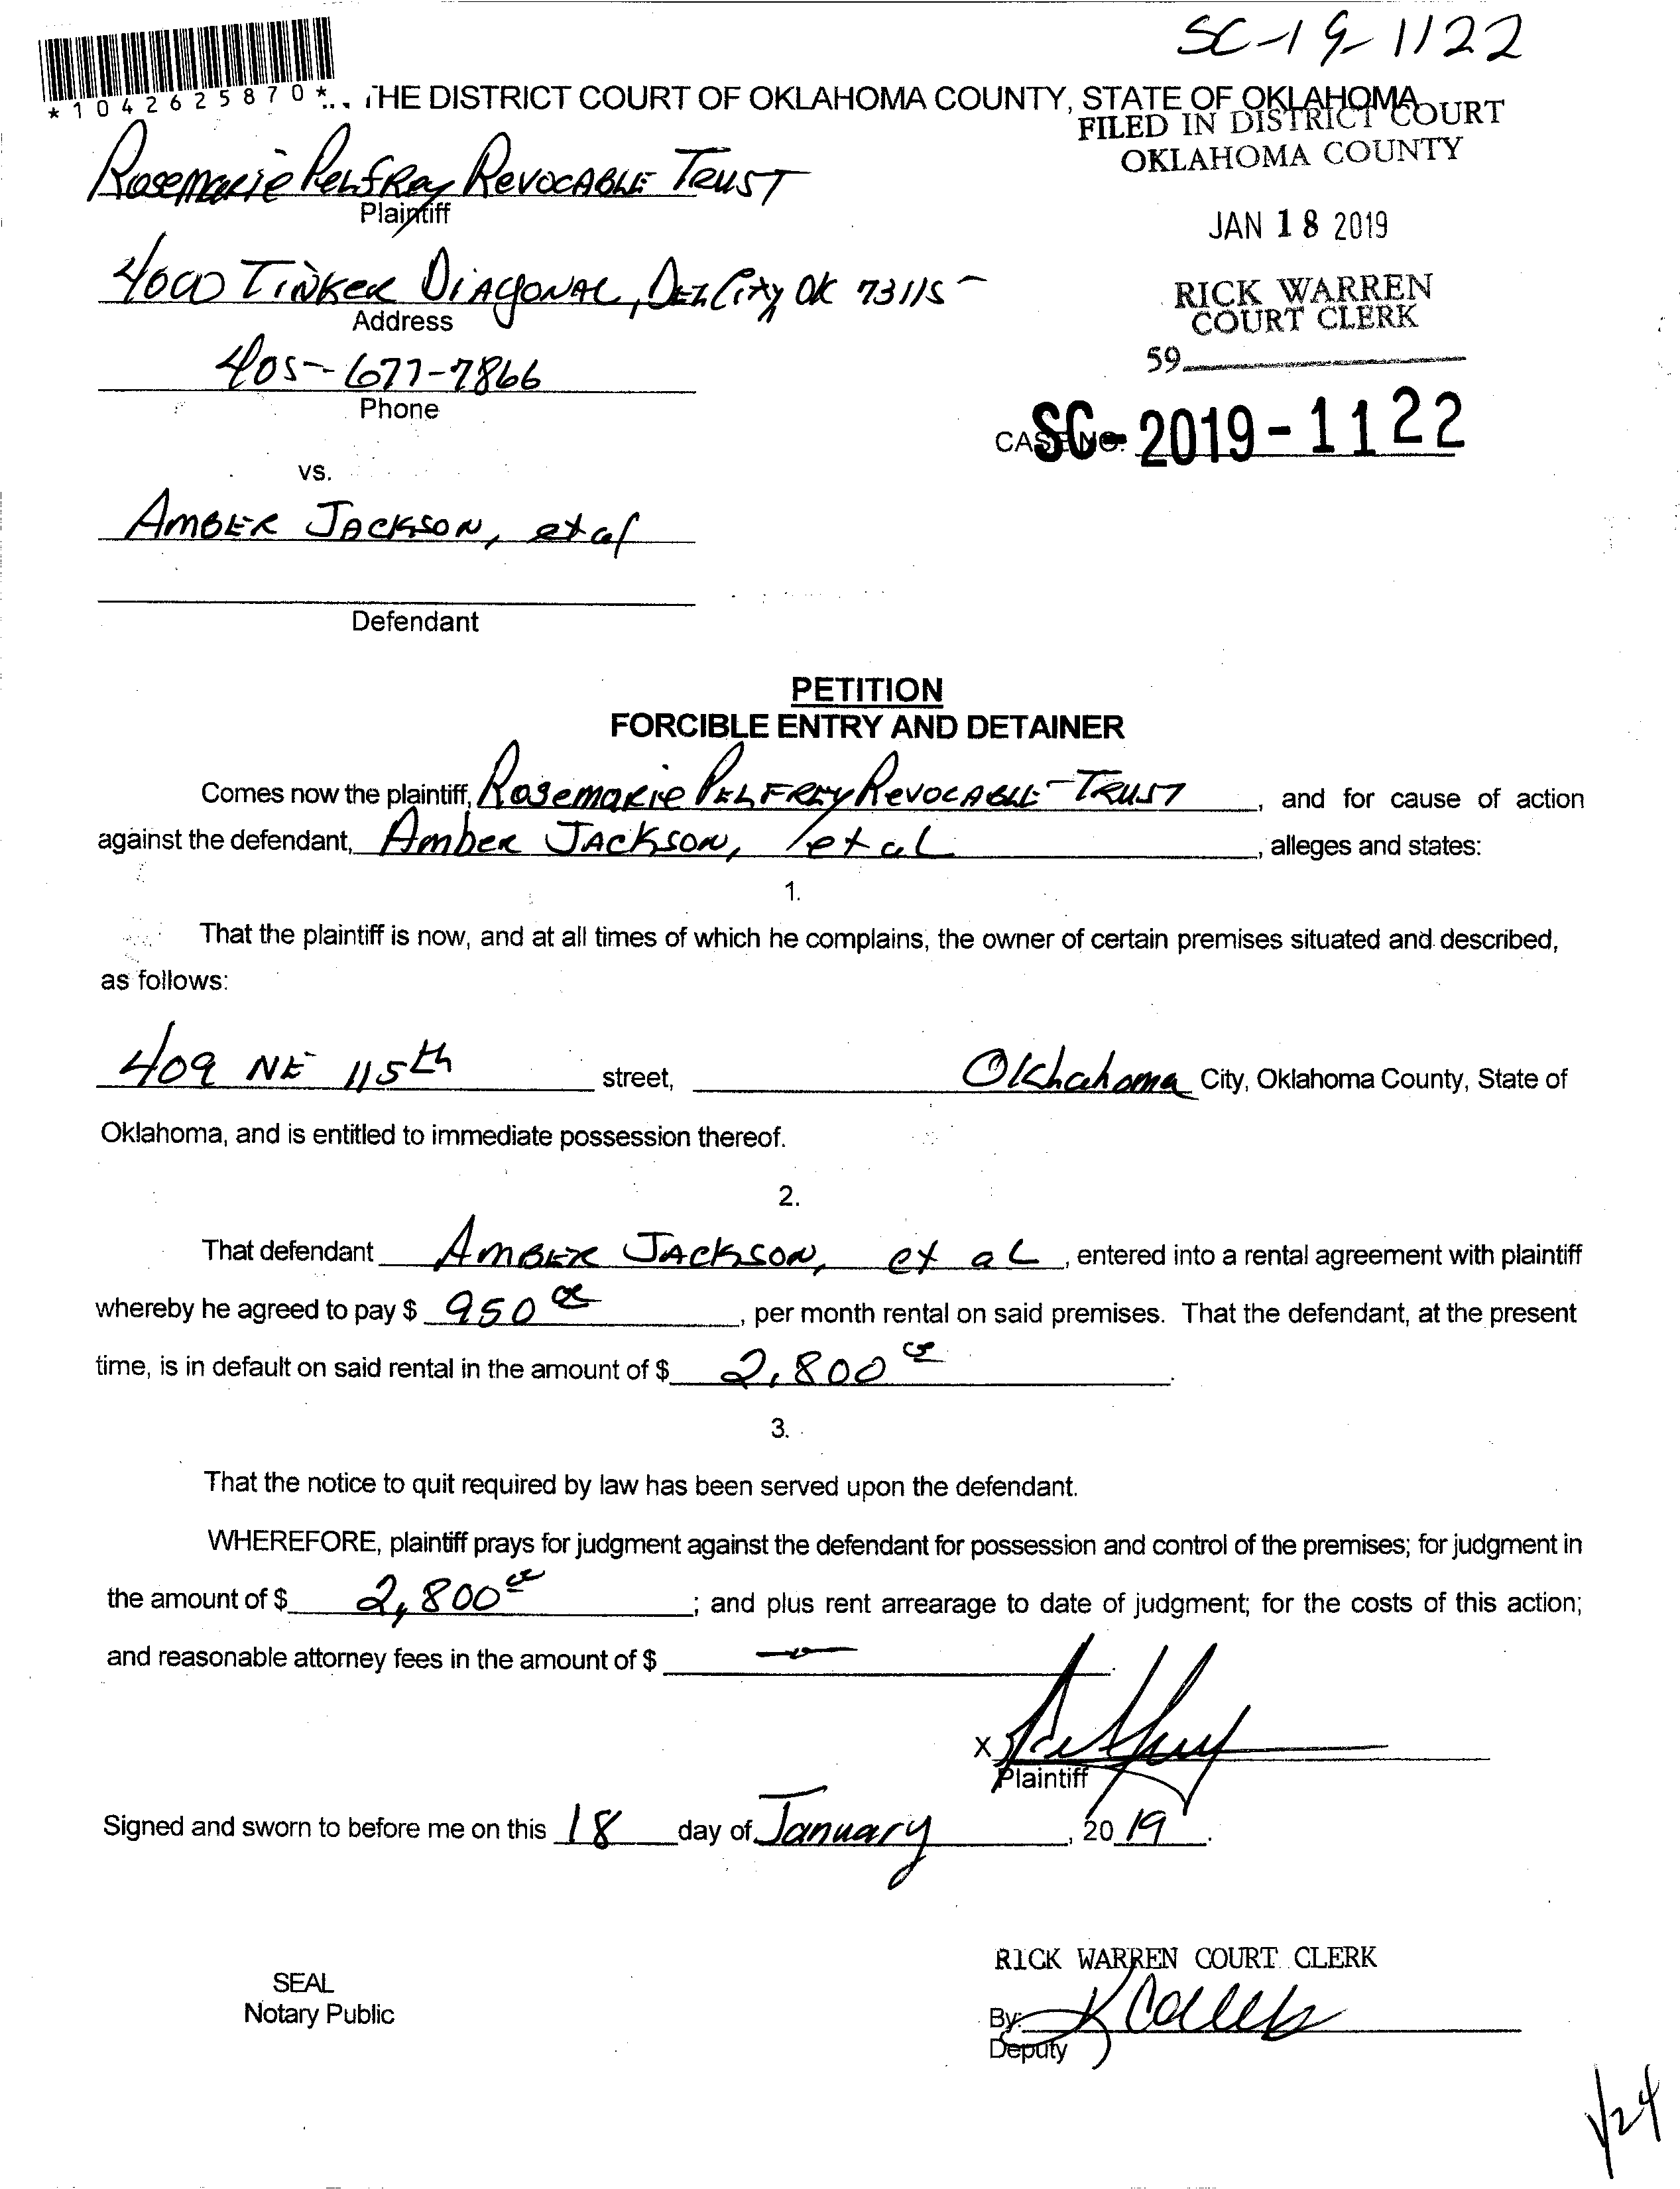 SC-19-1122
*1042625870*
THE DISTRICT COURT OF OKLAHOMA COUNTY, STATE OF OKLAHOMA
FILED IN DISTRICT COURT
OKLAHOMA COUNTY
Rosemarie Pelfrey Revocable Trust
Plaintiff
JAN 18 2019
4000 Tinker Diagonal, Del City OK 73115
Address
RICK WARREN
COURT CLERK
405-677-7866
59
Phone
CASE NO. SC-2019-1122
vs.
Amber Jackson, et al
Defendant
PETITION
FORCIBLE ENTRY AND DETAINER
Comes now the plaintiff, Rosemarie Pelfrey Revocable Trust, and for cause of action
against the defendant, Amber Jackson, et al, alleges and states:
1.
That the plaintiff is now, and at all times of which he complains, the owner of certain premises situated and described,
as follows:
409 NE 115th street, Oklahoma City, Oklahoma County, State of
Oklahoma, and is entitled to immediate possession thereof.
2.
That defendant Amber Jackson, et al, entered into a rental agreement with plaintiff
whereby he agreed to pay $ 950 00, per month rental on said premises. That the defendant, at the present
time, is in default on said rental in the amount of $ 2,800 00.
3.
That the notice to quit required by law has been served upon the defendant.
WHEREFORE, plaintiff prays for judgment against the defendant for possession and control of the premises; for judgment in
the amount of $ 2,800 00; and plus rent arrearage to date of judgment; for the costs of this action;
and reasonable attorney fees in the amount of $
X
Plaintiff
Signed and sworn to before me on this 18 day of January, 2019.
RICK WARREN COURT CLERK
SEAL
Notary Public
By:
Deputy
1/24